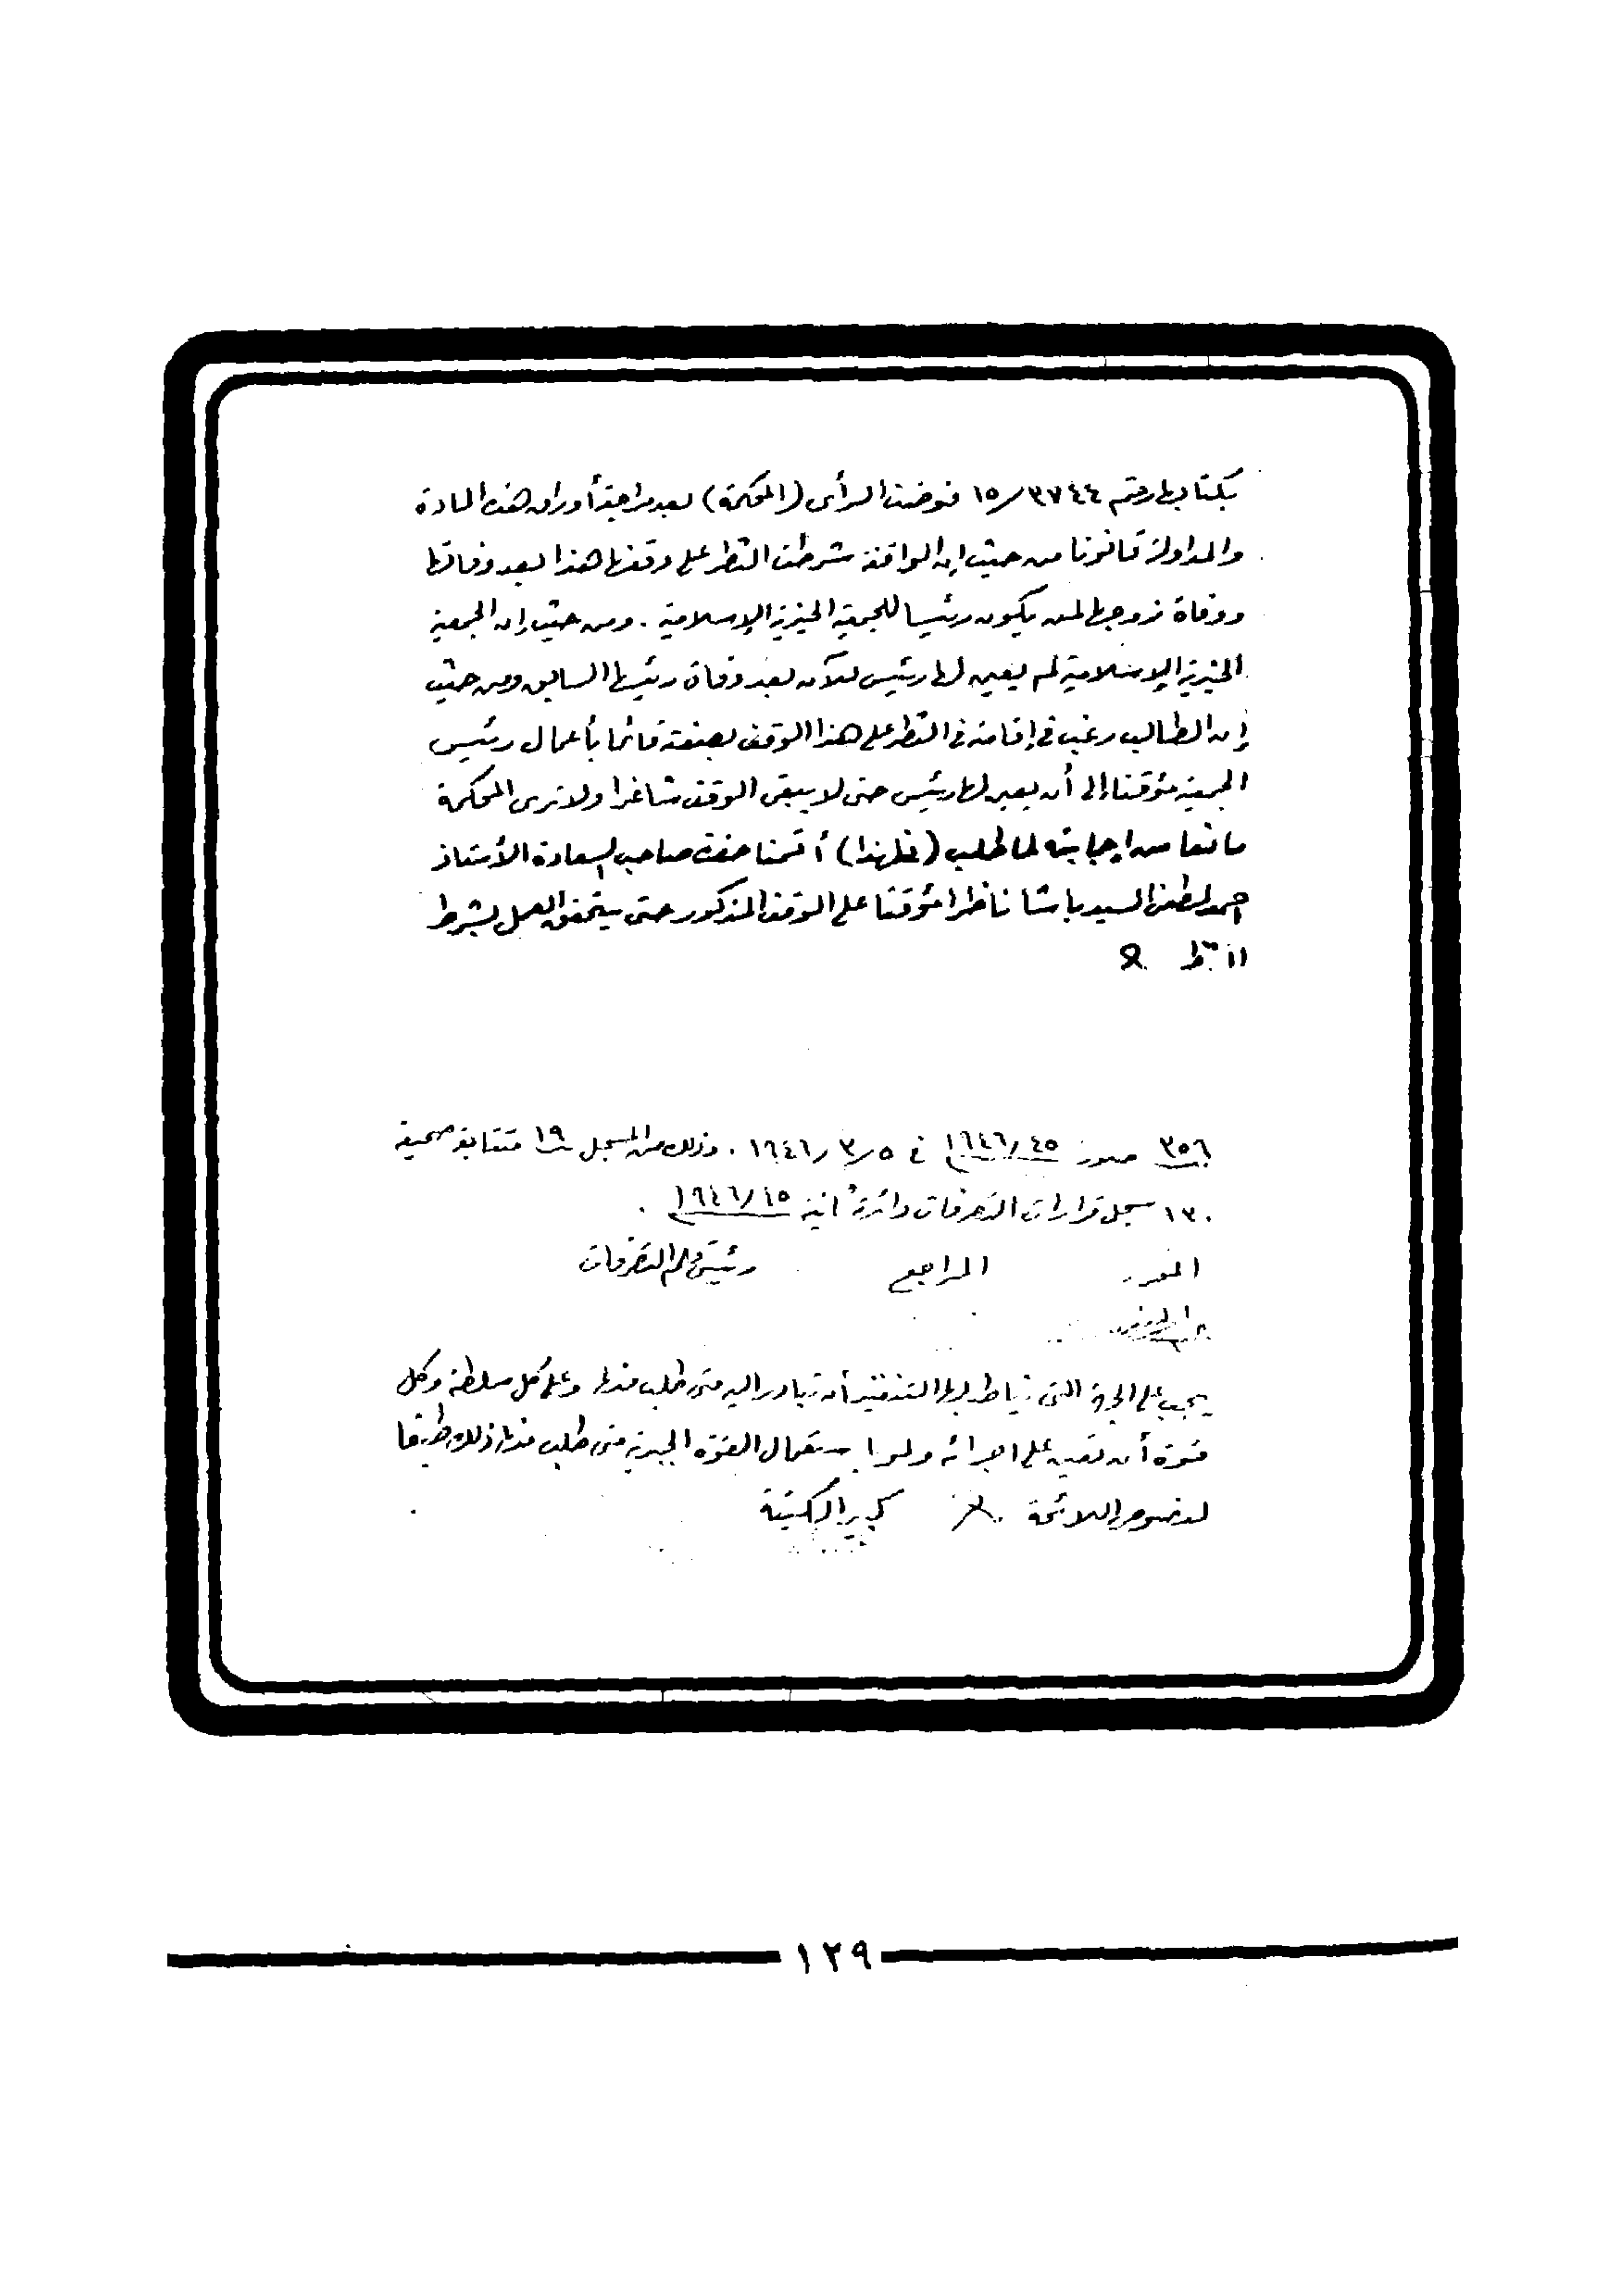 بكتابها رقم ٣٧٤٤/١٥ فوضت الرأى (المحكمة) بعد مراجعة أوراق هذه المادة
والمداولة قانونا من حيث إن الواقفة شرطت النظر على وقفها هذا بعد وفاتها
ووفاة زوجها لمن يكون رئيسا للجمعية الخيرية الإسلامية . ومن حيث إن الجمعية
الخيرية الإسلامية لم يعين لها رئيس للآن بعد وفاة رئيسها السابق ومن حيث
إن الطالب رغب فى إقامته فى النظر على هذا الوقف بصفته قائما بأعمال رئيس
الجمعية مؤقتا إلى أن يعين لها رئيس حتى لا يبقى الوقف شاغرا ولا ترى المحكمة
مانعا من إجابته لما طلب (فلهذا) أقمنا حضرة صاحب السعادة الأستاذ
احمد لطفى السيد باشا ناظرا مؤقتا على الوقف المذكور حتى يتحقق العمل بشرط
النظر
٣٥٦ صور ١٩٤٦/٤٥ فى ٣/٥/١٩٤٦ . وذلك من المسجل ١٩ متتابعة صحيفة
١٣٠ سجل قرارات التصرفات دائرة ثانية ١٩٤٦/٤٥ .
المحرر المراجع رئيس قلم التصرفات
يجب على الجهة التى يناط بها التنفيذ أن تبادر اليه متى طلب منها وعلى كل سلطة وكل
قوة أن تعين على اجرائه ولو باستعمال القوة الجبرية متى طلب منها ذلك طبقا
لنصوص اللائحة كبير الكتبة
١٢٩